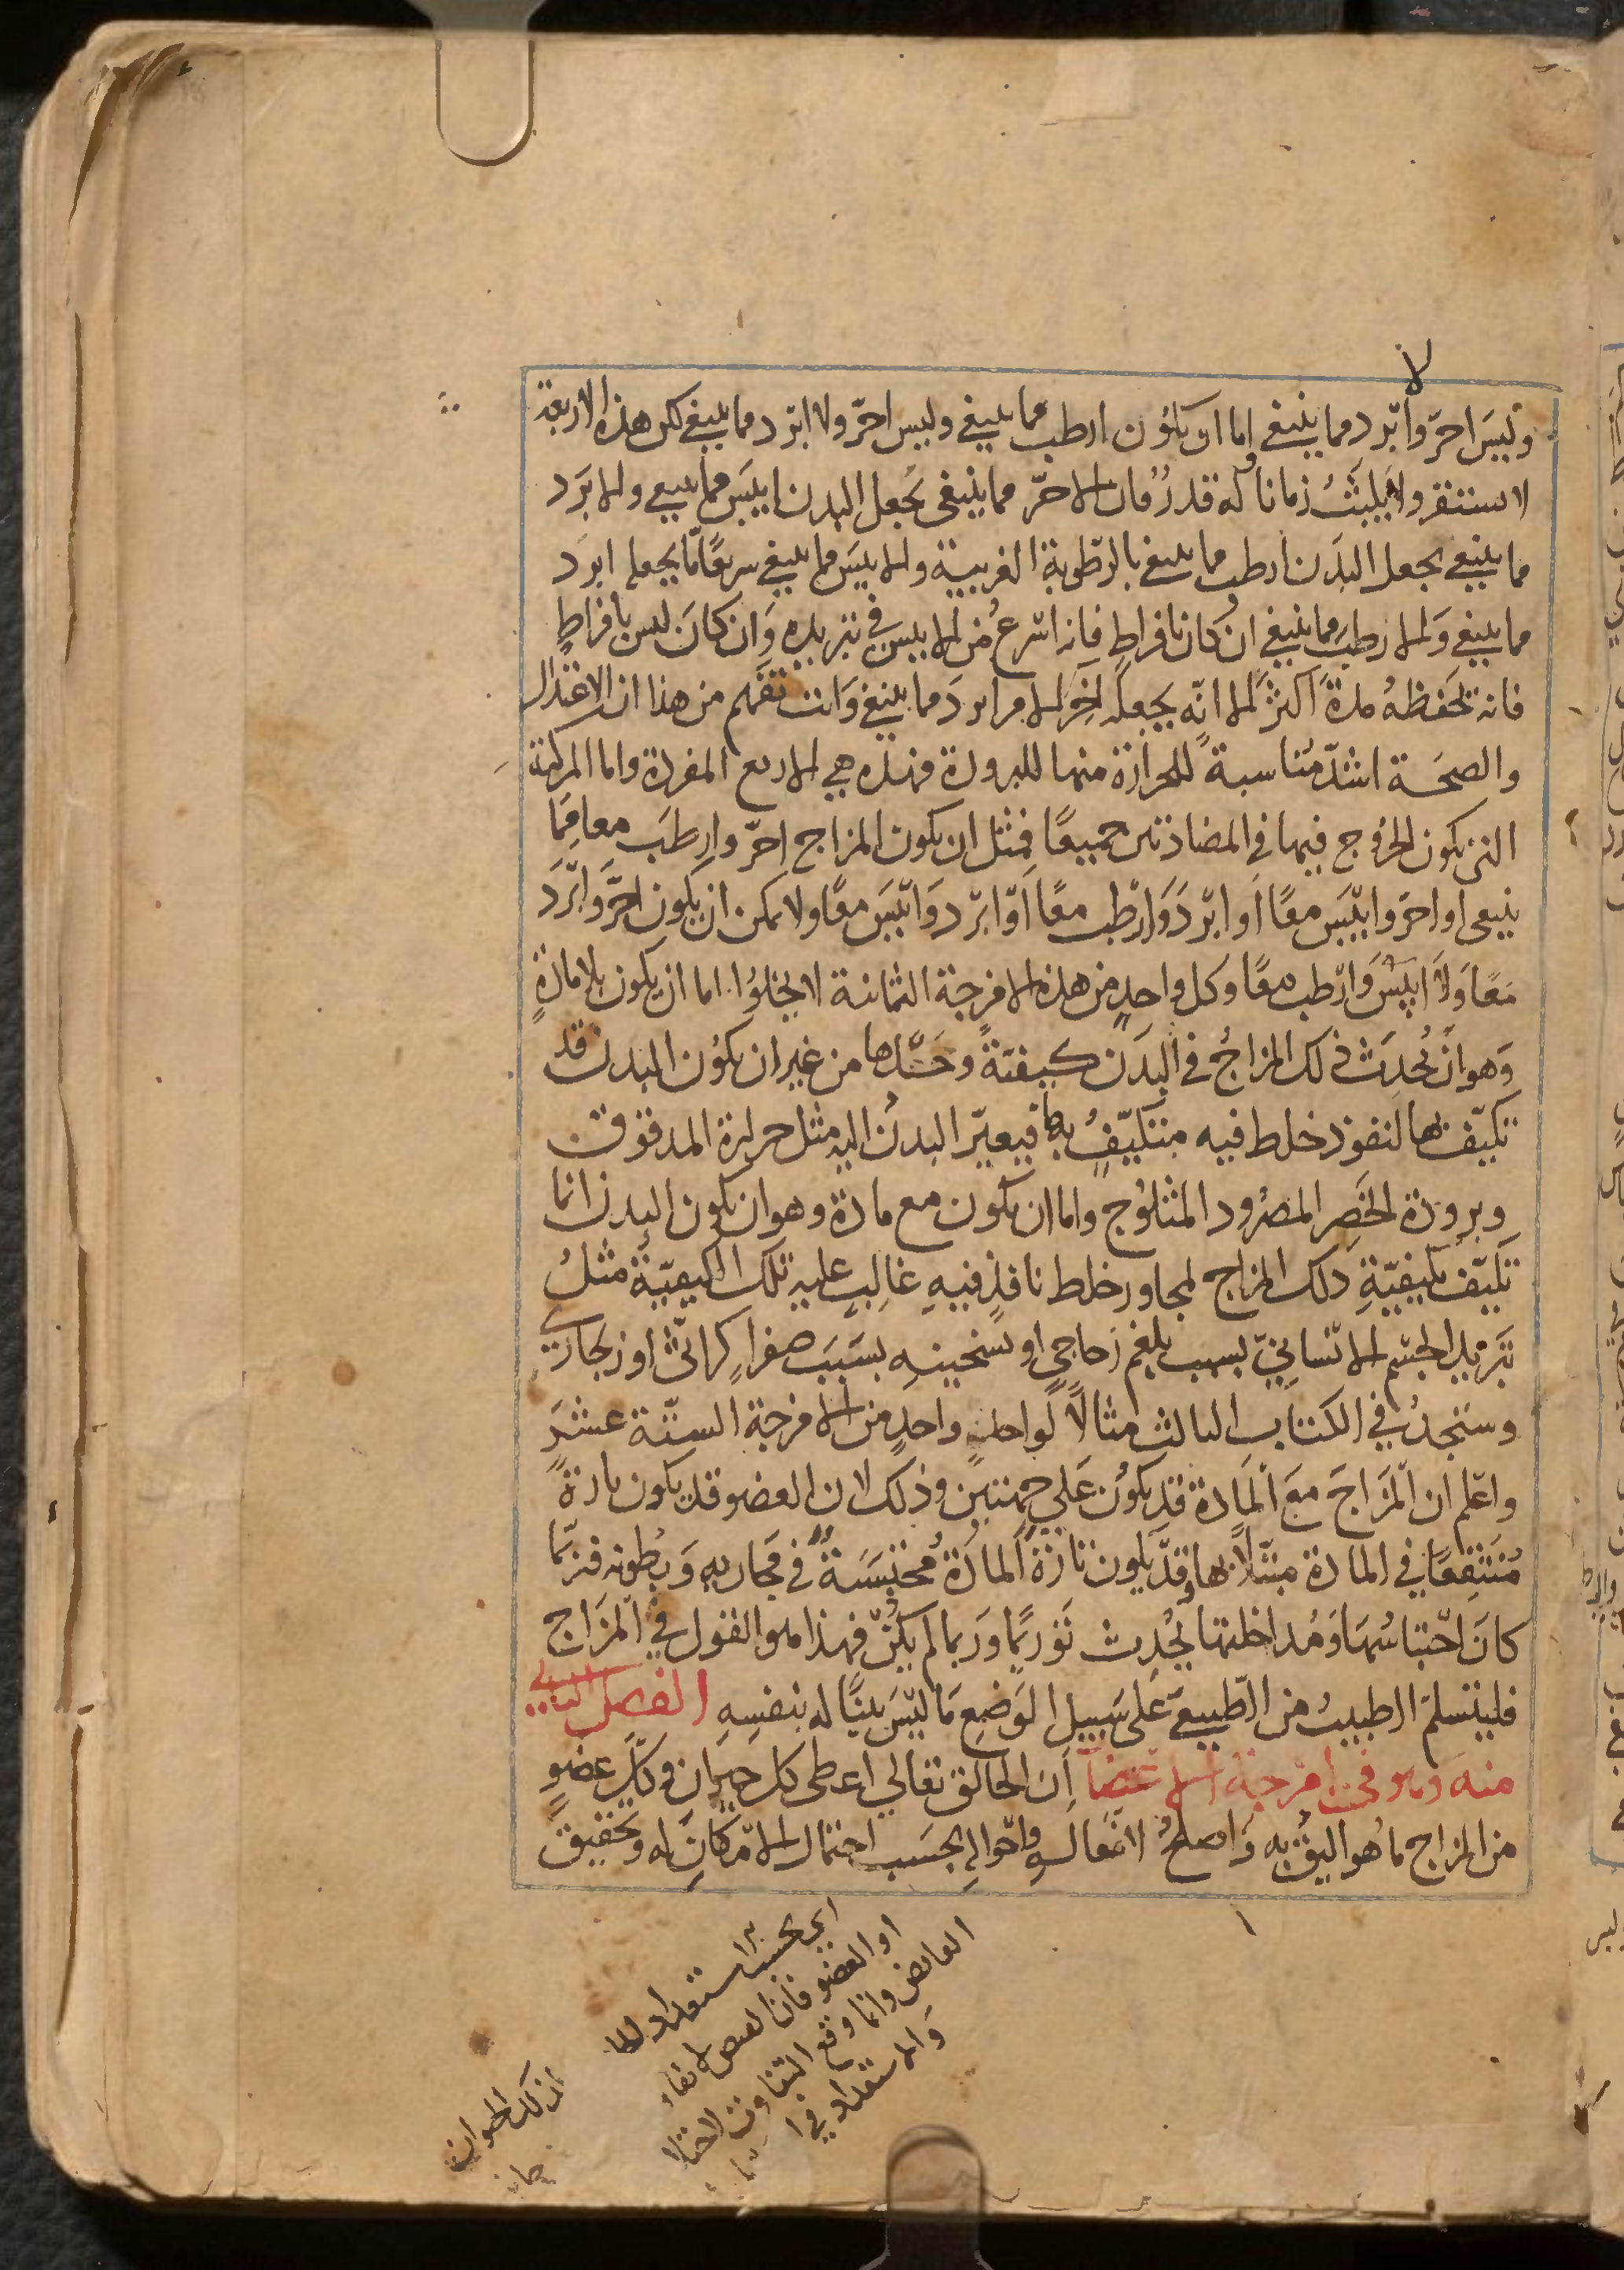 لا
وليس احر وابرد مما ينبغى اما ان يكون ارطب مما ينبغي وليس احر ولا ابرد مما ينبغي لكن هذه الاربعة
لا تستقر ولا يلبث زمانا له قدر فان الاحر مما ينبغى يجعل البدن ايبس مما ينبغي والابرد
مما ينبغي يجعل البدن ارطب مما ينبغي بالرطوبة الغريبة والايبس مما ينبغي سريعا ما يجعله ابرد
مما ينبغي والارطب مما ينبغي ان كان بافراط فانه اسرع من الايبس في تبريده وان كان ليس بافراط
فانه تحفظه مدة اكثر الا انه يجعله اخر الامر ابرد مما ينبغي وانت تفهم من هذا ان الاعتدال
والصحة اشد مناسبة للحرارة منها للبرودة فهذه هي الاربع المفردة واما المركبة
التي يكون الخروج فيها في المضادتين جميعا فمثل ان يكون المزاج احر وارطب معا مما
ينبغى او احر وايبس معا او ابرد وارطب معا او ابرد وايبس معا ولا يمكن ان يكون احر وابرد
معا ولا ايبس وارطب معا وكل واحد من هذه الامزجة الثمانية لا يخلوا اما ان يكون بلا مادة
وهو ان يحدث ذلك المزاج في البدن كيفية وحدها من غير ان يكون البدن قد
تكيف بها لنفوذ خلط فيه متكيف بها فيعير البدن اليه مثل حرارة المدقوق
وبرودة الخصر المصرود المثلوج واما ان يكون مع مادة وهو ان يكون البدن انما
تكيف بكيفية ذلك المزاج لمجاور خلط نافذ فيه غالب عليه تلك الكيفية مثل
تبريد الجسم الانساني بسبب بلغم زجاجي او تسخينه بسبب صفراء كراثي او زنجاري
وستجد في الكتاب الثالث مثالا لواحد واحد من الامزجة الستة عشر
واعلم ان المزاج مع المادة قد يكون على جهتين وذلك لان العضو قد يكون تارة
منتقعا في المادة مبتلا بها وقد يكون تارة المادة محتبسة في مجاريه وبطونه فربما
كان احتباسها ومداخلتها يحدث توريما وربما لم يكن فهذا هو القول في المزاج
فليتسلم الطبيب من الطبيعي على سبيل الوضع ما ليس بينا له بنفسه الفصل الثاني
منه وهو في امزجة الاعضا ان الخالق تعالي اعطى كل حيوان وكل عضو
من المزاج ما هو اليق به واصلح لافعاله واحواله بحسب احتمال الامكان له وتحقيق
اي بحسب استعداد
او العضو فان
الفايض وانما وقع التفاوت
والاستعداد في